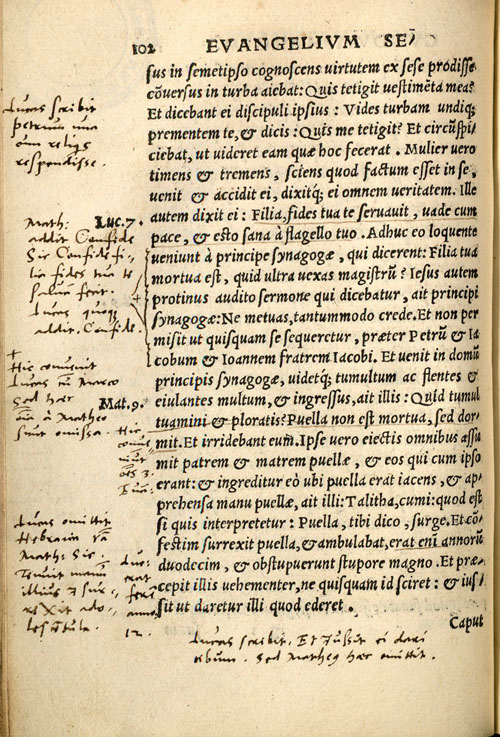 102 EVANGELIVM SE
sus in semetipso cognoscens virtutem ex sese prodisse
cōuersus in turba aiebat: Quis tetigit uestimēta mea?
Et dicebant ei discipuli ipsius: Vides turbam undiq;
prementem te, & dicis: Quis me tetigit? Et circūspi
ciebat, ut uideret eam quæ hoc fecerat. Mulier uero
timens & tremens, sciens quod factum esset in se,
uenit & accidit ei, dixitq; ei omnem ueritatem. Ille
autem dixit ei: Filia, fides tua te seruauit, uade cum
pace, & esto sana à flagello tuo. Adhuc eo loquente
ueniunt à principe synagogæ, qui dicerent: Filia tua
mortua est, quid ultra uexas magistrū? Iesus autem
protinus audito sermone qui dicebatur, ait principi
synagogæ: Ne metuas, tantummodo crede. Et non per
misit ut quisquam se sequeretur, præter Petrū & Ia
cobum & Ioannem fratrem Iacobi. Et uenit in domū
principis synagogæ, uidetq; tumultum ac flentes &
eiulantes multum, & ingressus, ait illis: Quid tumul
tuamini & ploratis? Puella non est mortua, sed dor-
mit. Et irridebant eum. Ipse uero eiectis omnibus assu
mit patrem & matrem puellæ, & eos qui cum ipso
erant: & ingreditur eò ubi puella erat iacens, & ap
prehensa manu puellæ, ait illi: Talitha, cumi: quod est
si quis interpretetur: Puella, tibi dico, surge. Et cō
festim surrexit puella, & ambulabat, erat eni annorū
duodecim, & obstupuerunt stupore magno. Et præ-
cepit illis uehementer, ne quisquam id sciret: & ius/
sit ut daretur illi quod ederet.
Caput
Lucas scribit
petrum
respondisse.
Luc. 7.
Math:
addit Confide
Sic Confide fi-
lia fides tua te
salua fecit.
Lucas quoq;
addit. Confide.
Mat. 9.
Hic
Lucas cū Marco
sed hæc
à Matheo
sunt omissa.
Lucas omittit
Hebraica
Math: Sic.
Tenuit manū
illius & sur-
rexit ado-
lescētula.
duo-
erat
12.
Lucas scribit. Et Jussit ei dari
cibum. Sed Matheq hæc omittit.